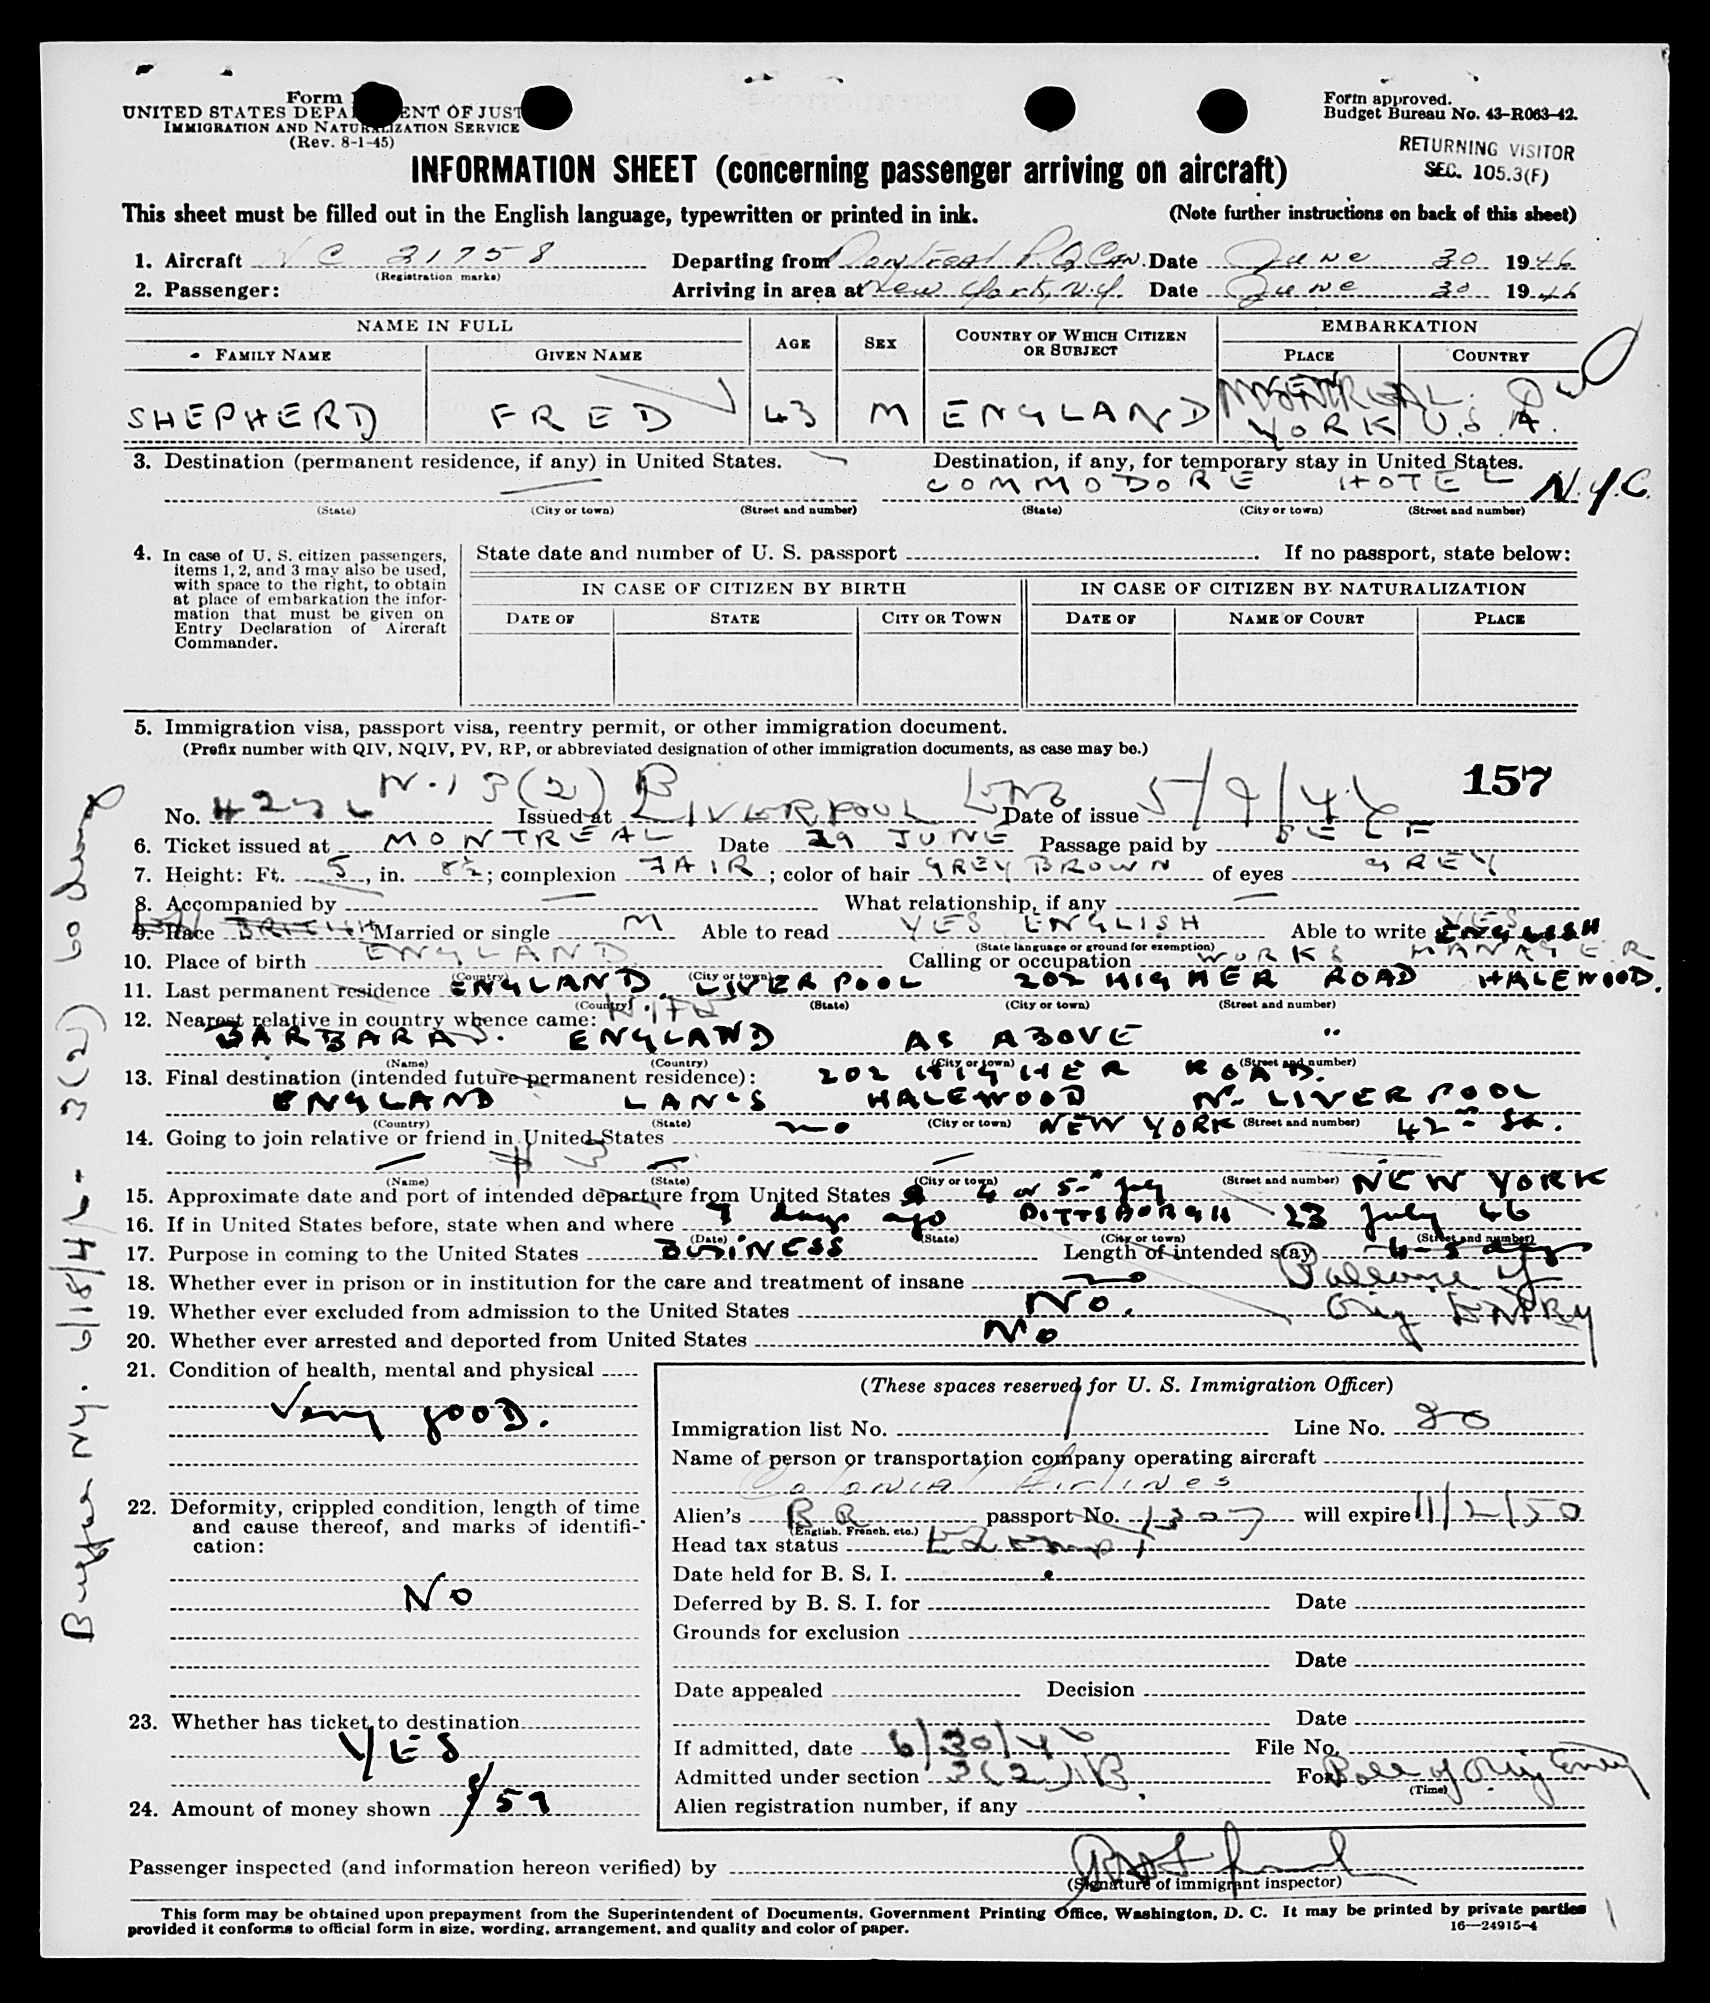 Form
UNITED STATES DEPA ENT OF JUST
IMMIGRATION AND NATURALIZATION SERVICE
(Rev. 8-1-45)
Form approved.
Budget Bureau No. 43-R063-42.
RETURNING VISITOR
SEC. 105.3(F)
INFORMATION SHEET (concerning passenger arriving on aircraft)
This sheet must be filled out in the English language, typewritten or printed in ink. (Note further instructions on back of this sheet)
1. Aircraft NC 21758 Departing from Montreal P.Q. CAN. Date June 30 1946
(Registration marks)
2. Passenger: Arriving in area at New York, N.Y. Date June 30 1946
NAME IN FULL AGE SEX COUNTRY OF WHICH CITIZEN OR SUBJECT EMBARKATION
FAMILY NAME GIVEN NAME PLACE COUNTRY
SHEPHERD FRED 43 M ENGLAND MONTREAL YORK U.S.A.
3. Destination (permanent residence, if any) in United States. Destination, if any, for temporary stay in United States.
COMMODORE HOTEL N.Y.C.
(State) (City or town) (Street and number) (State) (City or town) (Street and number)
4. In case of U. S. citizen passengers, items 1, 2, and 3 may also be used, with space to the right, to obtain at place of embarkation the information that must be given on Entry Declaration of Aircraft Commander.
State date and number of U. S. passport . If no passport, state below:
IN CASE OF CITIZEN BY BIRTH IN CASE OF CITIZEN BY NATURALIZATION
DATE OF STATE CITY OR TOWN DATE OF NAME OF COURT PLACE
5. Immigration visa, passport visa, reentry permit, or other immigration document.
(Prefix number with QIV, NQIV, PV, RP, or abbreviated designation of other immigration documents, as case may be.)
157
N.I 3(2) B
No. Issued at LIVERPOOL Date of issue 5/9/46
6. Ticket issued at MONTREAL Date 29 JUNE Passage paid by SELF
7. Height: Ft. 5, in. 8½; complexion FAIR; color of hair GREY BROWN of eyes GREY
8. Accompanied by — What relationship, if any —
9. Race BRITISH Married or single M Able to read YES ENGLISH Able to write YES ENGLISH
(State language or ground for exemption)
10. Place of birth ENGLAND Calling or occupation WORKS MANAGER
(Country) (City or town)
11. Last permanent residence ENGLAND. LIVERPOOL 202 HIGHER ROAD HALEWOOD.
(Country) (State) (City or town) (Street and number)
12. Nearest relative in country whence came: WIFE
BARBARA J. ENGLAND AS ABOVE "
(Name) (Country) (City or town) (Street and number)
13. Final destination (intended future permanent residence): 202 HIGHER ROAD.
ENGLAND LANCS HALEWOOD Nr LIVERPOOL
(Country) (State) (City or town) (Street and number)
14. Going to join relative or friend in United States no NEW YORK 42nd St.
(Name) (State) (City or town) (Street and number)
15. Approximate date and port of intended departure from United States 4 or 5th July NEW YORK
16. If in United States before, state when and where 7 days ago PITTSBURGH 23 July 46
(Date) (State) (City or town) (Street and number)
17. Purpose in coming to the United States BUSINESS Length of intended stay 4-5 days
18. Whether ever in prison or in institution for the care and treatment of insane no Balance of
19. Whether ever excluded from admission to the United States No. Orig ENTRY
20. Whether ever arrested and deported from United States No
21. Condition of health, mental and physical
Very good.
22. Deformity, crippled condition, length of time and cause thereof, and marks of identification:
No
23. Whether has ticket to destination
YES
24. Amount of money shown $59
(These spaces reserved for U. S. Immigration Officer)
Immigration list No. 1 Line No. 20
Name of person or transportation company operating aircraft
Colonial Airlines
Alien's BR passport No. 1307 will expire 11/2/50
(English, French, etc.)
Head tax status Exempt
Date held for B. S. I.
Deferred by B. S. I. for Date
Grounds for exclusion
Date
Date appealed Decision
Date
If admitted, date 6/30/46 File No.
Admitted under section 3(2) B For Bal of Orig Entry
(Time)
Alien registration number, if any
Passenger inspected (and information hereon verified) by
(Signature of immigrant inspector)
This form may be obtained upon prepayment from the Superintendent of Documents, Government Printing Office, Washington, D. C. It may be printed by private parties
provided it conforms to official form in size, wording, arrangement, and quality and color of paper. 16—24915-4
Buffalo NY. 6/18/46 - 3(2) 60 days